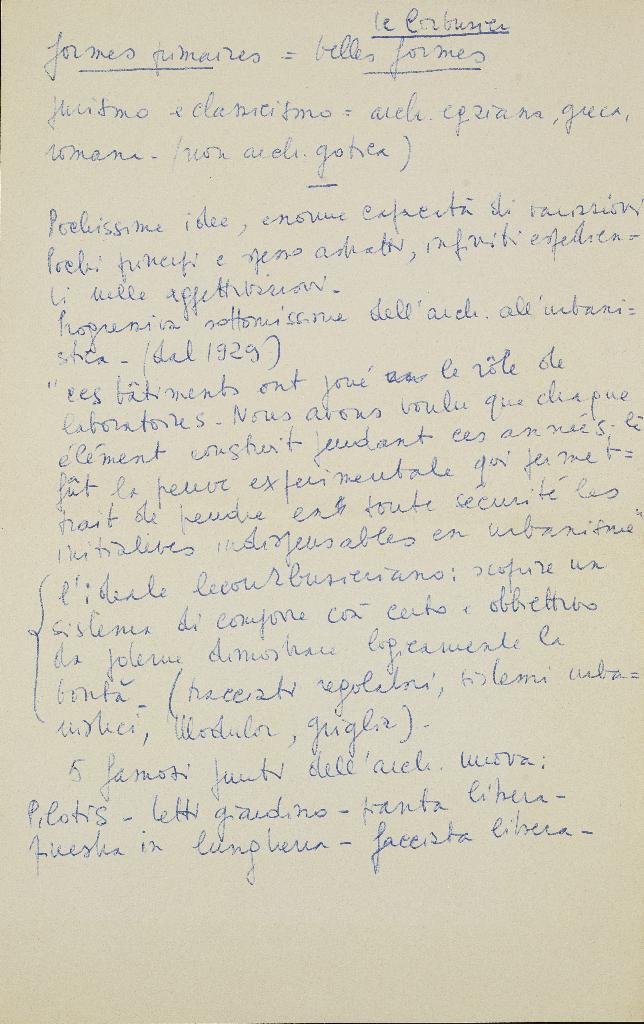 le Corbusier
formes primaires = belles formes
purismo e classicismo = arch. egiziana, greca,
romana - (non arch. gotica)
Pochissime idee, enorme capacità di variazioni
Pochi principi e spesso astratti, infiniti espedien=
ti nelle aggettivazioni.
Progressiva sottomissione dell'arch. all'urbani=
stica - (dal 1929)
"ces bâtiments ont joué le rôle de
laboratoires. Nous avons voulu que chaque
élément construit pendant ces années là
fût la preuve expérimentale qui permet=
trait de prendre en toute securité les
initiatives indispensables en urbanisme"
l'ideale lecourbusieriano: scoprire un
sistema di comporre così certo e obbiettivo
da poterne dimostrare logicamente la
bontà - (tracciati regolatori, sistemi urba=
nistici, Modulor, griglia).
5 famosi punti dell'arch. nuova:
Pilotis - tetti giardino - pianta libera -
finestra in lunghezza - facciata libera -